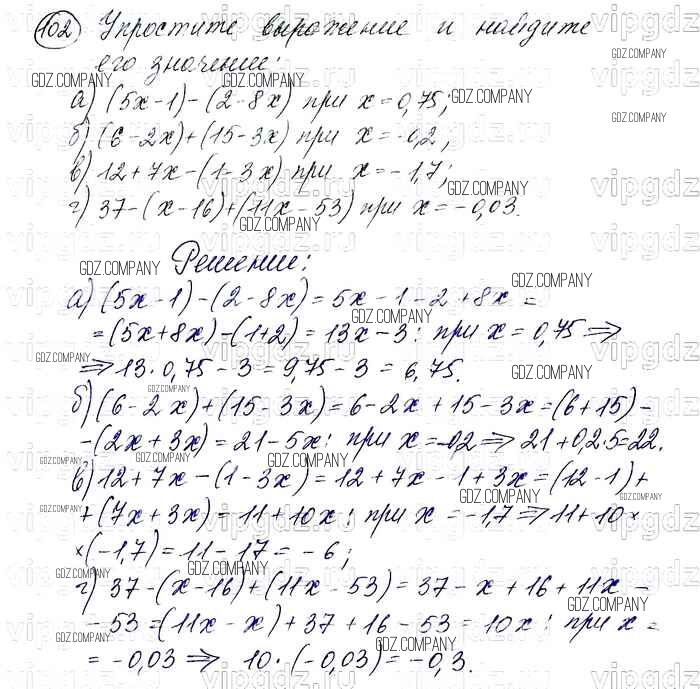 102 Упростите выражение и найдите
его значение:
а) (5x-1)-(2-8x) при x=0,75;
б) (6-2x)+(15-3x) при x=-0,2;
в) 12+7x-(1-3x) при x=-1,7;
г) 37-(x-16)+(11x-53) при x=-0,03.
Решение:
а) (5x-1)-(2-8x)=5x-1-2+8x=
=(5x+8x)-(1+2)=13x-3: при x=0,75 ⇒
⇒ 13·0,75-3=9,75-3=6,75.
б) (6-2x)+(15-3x)=6-2x+15-3x=(6+15)-
-(2x+3x)=21-5x: при x=-0,2 ⇒ 21+0,2·5=22.
в) 12+7x-(1-3x)=12+7x-1+3x=(12-1)+
+(7x+3x)=11+10x: при x=-1,7 ⇒ 11+10×
×(-1,7)=11-17=-6;
г) 37-(x-16)+(11x-53)=37-x+16+11x-
-53=(11x-x)+37+16-53=10x: при x=
=-0,03 ⇒ 10·(-0,03)=-0,3.
GDZ.COMPANY
vipgdz.ru